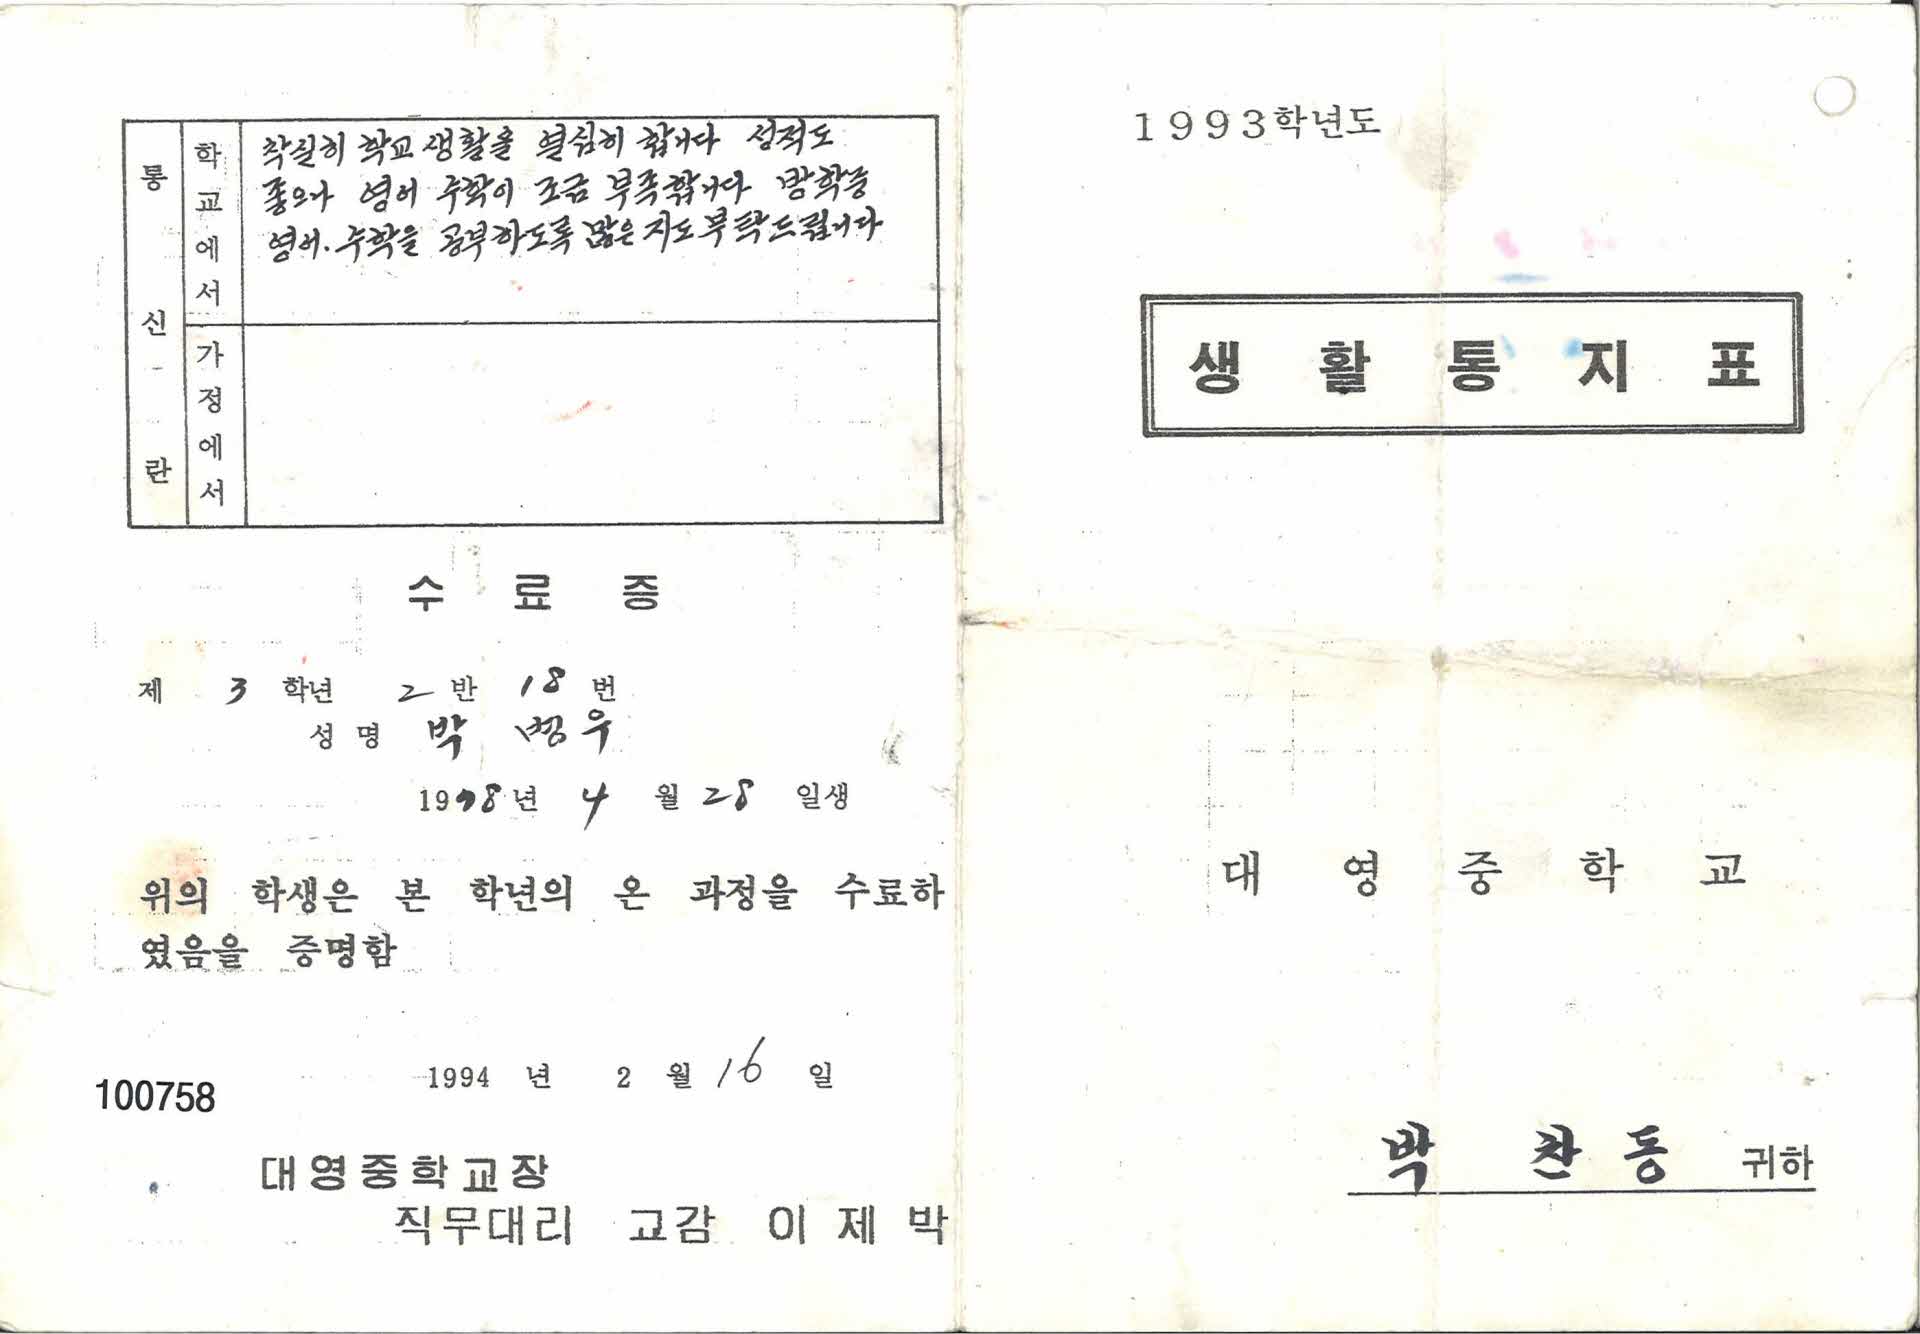 통신란
학교에서
착실히 학교생활을 열심히 합니다 성적도
좋으나 영어 수학이 조금 부족합니다 방학중
영어. 수학을 공부하도록 많은 지도 부탁드립니다
가정에서
수 료 증
제 3 학년 2 반 18 번
성 명 박 병우
1978년 4 월 28 일생
위의 학생은 본 학년의 온 과정을 수료하
였음을 증명함
1994 년 2 월 16 일
100758
대영중학교장
직무대리 교감 이 제 박
1993학년도
생 활 통 지 표
대 영 중 학 교
박 찬 동 귀하